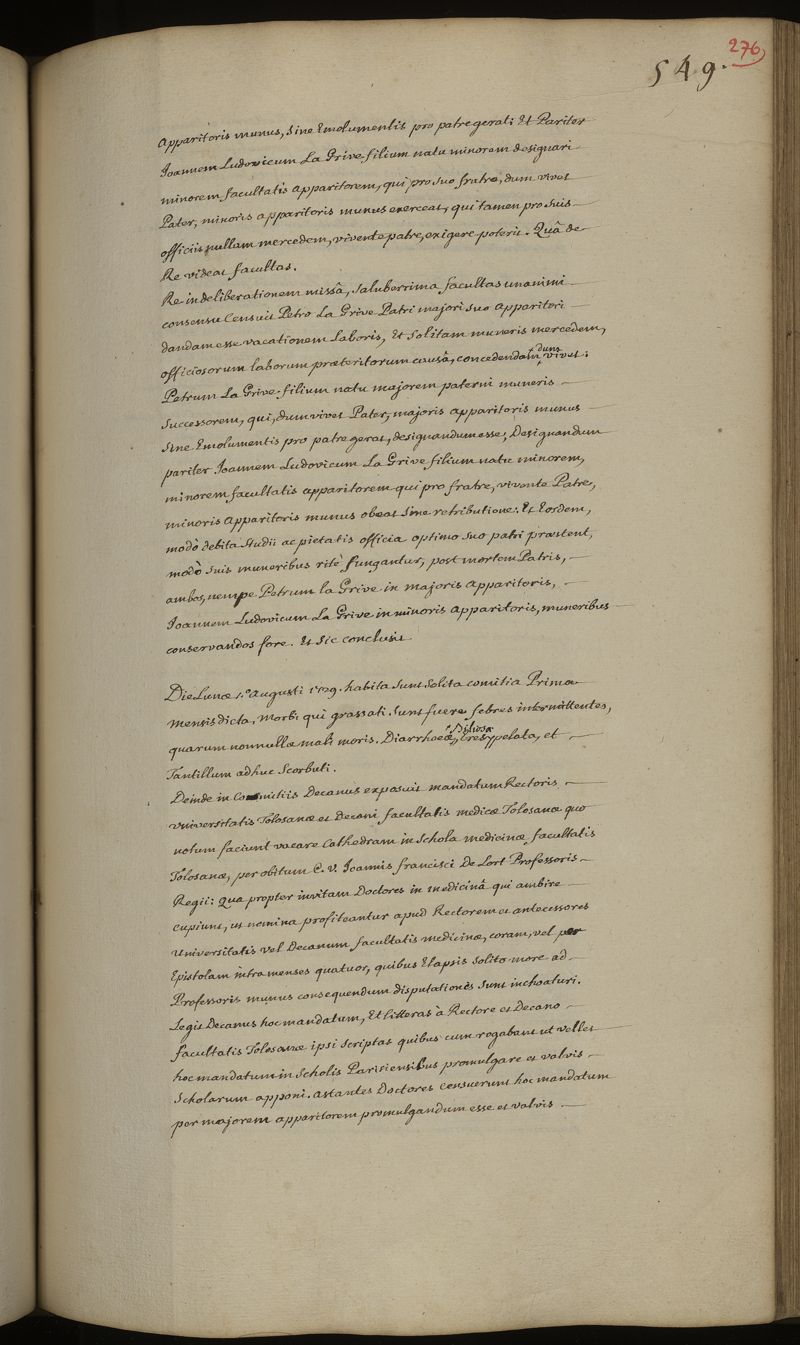 276
549.
apparitoris munus, sine Emolumentis pro patre gerat: Et Pariter
Joannem Ludovicum La Grive filium natu minorem designari
minorem facultatis apparitorem, qui pro suo fratre, dum vivet
Pater, minoris apparitoris munus exerceat, qui tamen pro suis
officiis nullam mercedem, vivente patre, exigere poterit. Quâ de
Re videat facultas.
Re in deliberationem missâ, saluberrima facultas unanimi
consensu Censuit Petro La Grive Patri majori suo apparitori
dandam esse vacationem Laboris, Et Solitam muneris mercedem,
officiosorum laborum præteritorum causâ, concedendam, dum vivet:
Petrum La Grive filium natu majorem paterni muneris
Successorem, qui, dum vivet Pater, majoris apparitoris munus
Sine Emolumentis pro patre gerat, designandum esse; Designandum
pariter Joannem Ludovicum La Grive filium natu minorem,
minorem facultatis apparitorem qui pro fratre, vivente Patre,
minoris Apparitoris munus obeat sine retributione: Et Eosdem,
modò debita Studii ac pietatis officia optimo suo patri præstent,
modò suis muneribus ritè fungantur, post mortem Patris,
ambos, nempe Petrum la Grive in majoris Apparitoris,
Joannem Ludovicum La Grive in minoris apparitoris, muneribus
conservandos fore. Et sic conclusit
Die Lunæ 1.° Augusti 1729. habita sunt solita comitia Prima
mensis dicta, morbi qui grassati sunt fuere febres intermittentes,
quarum nonnullæ mali moris. Diarrhoeæ biliosæ, Eresypelata, et
Tantillum adhuc Scorbuti.
Deinde in Comitiis Decanus exposuit mandatum Rectoris
universitatis Tolosanæ et Decani facultatis medicæ Tolosanæ quo
notum faciunt vacare Cathedram in Schola medicinæ facultatis
Tolosanæ, per obitum C. V. Joannis francisci De Lort Professoris
Regii: Qua propter invitam Doctores in medicinâ qui ambire
cupiunt, ut nomina profiteantur apud Rectorem et antecessores
Universitatis vel Decanum facultatis medicinæ, coram, vel per
Epistolam intra menses quatuor, quibus Elapsis solito more ad
Professoris munus consequendum disputationes sunt inchoaturi.
Legit Decanus hoc mandatum, Et litteras à Rectore et Decano
facultatis Tolosanæ ipsi scriptas quibus cum rogabant ut vellet
hoc mandatum in Scholis Parisiensibus promulgare et valvis
Scholarum apponi. astantes Doctores Censuerunt hoc mandatum
per majorem apparitorem promulgandum esse et valvis